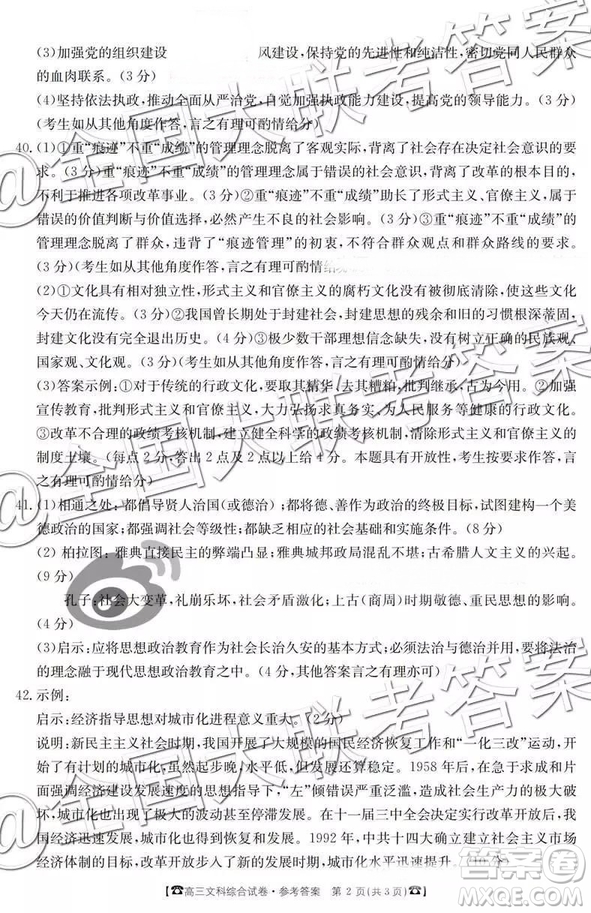 (3)加强党的组织建设 风建设,保持党的先进性和纯洁性,密切党同人民群众
的血肉联系。(3 分)
(4)坚持依法执政,推动全面从严治党,加强执政能力建设,提高党的领导能力。(3 分)
(考生如从其他角度作答,言之有理可酌情给分)
40. (1)①重“痕迹”不重“成绩”的管理理念脱离了客观实际,背离了社会存在决定社会意识的要
求。(3 分)②重“痕迹”不重“成绩”的管理理念属于错误的社会意识,背离了改革的根本目的,
不利于推进各项改革事业。(3 分)重“痕迹”不重“成绩”助长了形式主义、官僚主义,属于错
误的价值判断与价值选择,必然产生不良的社会影响。(3 分)③重“痕迹”不重“成绩”的
管理理念脱离了群众,违背了“痕迹管理”的初衷,不符合群众观点和群众路线的要求。
(3 分)(考生如从其他角度作答,言之有理可酌情给
(2)①文化具有相对独立性,形式主义和官僚主义的腐朽文化没有随着社会的变迁而消失,
今天仍在流传。(3 分)②我国曾长期处于封建社会,封建思想的残余和旧的习惯根深蒂固,
封建文化没有完全退出历史。(4 分)③极少数干部理想信念缺失,没有树立正确的民族观、
国家观、文化观。(3 分)(考生如从其他角度作答,言之有理可酌情给分)
(3)(答案示例:)①对于传统的行政文化,要取其精华、去其糟粕,批判继承、古为今用。②加强
宣传教育,批判形式主义和官僚主义,倡导实事求是、执政为民、务实清廉等健康的行政文化。
③改革不合理的政绩考核机制,建立健全科学的政绩考核机制,清除形式主义和官僚主义的
制度土壤。(每点 2 分,答出 2 点以上给 4 分。本题具有开放性,考生如从其他角度作答,言
之有理可酌情给分)
41. (1)相通之处:都倡导贤人治国(或德治);都将德、善作为政治的终极目标,试图构建一个美
德政治的国家;都强调社会等级性;都研究德治的社会基础和实施条件。(8 分)
(2) 柏拉图:雅典直接民主的弊端凸显;雅典城邦政局混乱不堪;古希腊人文主义的兴起。
(9 分)
孔子:社会大变革,礼崩乐坏,社会矛盾激化;上古(商周)时期敬德、重民思想的影响。
(4 分)
(3)启示:应将思想政治教育作为社会长治久安的基本方式;必须坚持法治与德治并用,将法
治的理念融于现代思想政治教育之中。(4 分,其他答案言之有理亦可)
42. 示例:
启示:经济指导思想对城市化进程意义重大。(2分)
说明:新民主主义社会时期,我国开展了大规模的国民经济恢复工作和“一化三改”运动,开
始了有计划的城市化,虽然起步晚、水平低,但发展平稳,成效显著。1958 年后,在急于求成和
片面强调经济建设发展速度的思想指导下,“左”倾错误严重泛滥,造成社会生产力的极大破
坏,城市化也出现了大起大落甚至停滞发展。在十一届三中全会决定实行改革开放后,我
国城市发展,城市化开始出现明显恢复。1992 年,中共十四大确立建立社会主义市场
经济体制的目标,改革开放步入了一个新时期,城市化水平迅速提升。(10 分)
☎高三文科综合试卷·参考答案 第 2 页(共 3 页)☎
@全国大联考答案
@全国大联考答案
@全国大联考答案